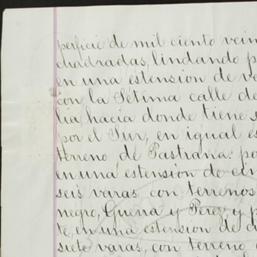 perficie de mil ciento vein
cuadradas, lindando p
en una estension de va
con la Setima calle de
lia hacia donde tiene s
por el Sur, en igual es
terreno de Pastrana: po
en una estension de cin
seis varas con terrenos
negro, Guina y Perez; y p
te, en una estension de d
siete varas, con terreno